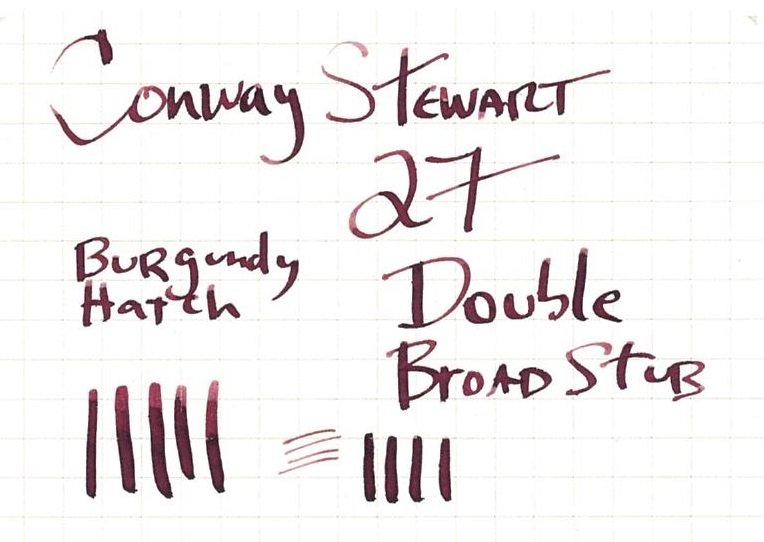 Conway Stewart
27
Burgundy
Hatch
Double
Broad Stub